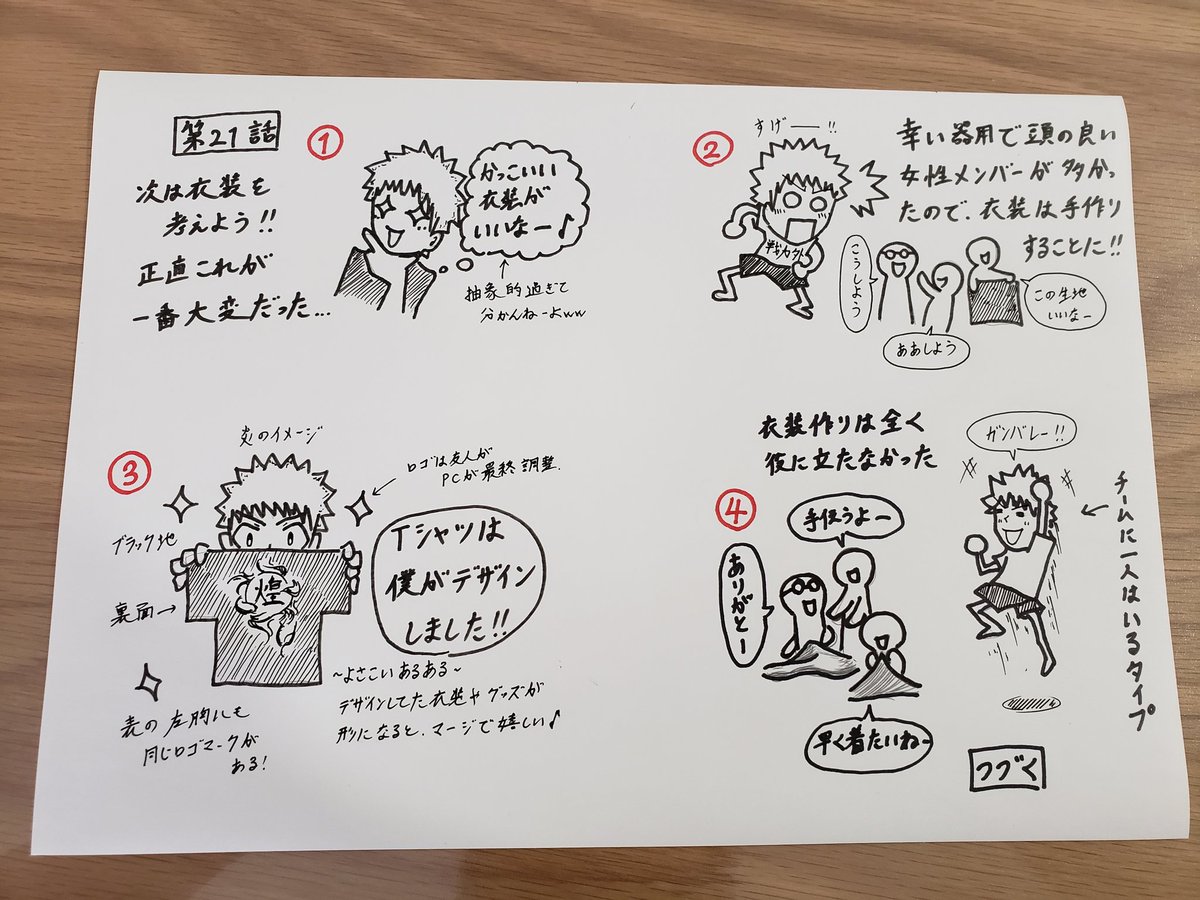 第21話
次は衣装を
考えよう!!
正直これが
一番大変だった…
①
かっこいい
衣装が
いいなー♪
抽象的過ぎて
分かんねーよww
②
すげー!!
戦力外
幸い器用で頭の良い
女性メンバーが多かっ
たので、衣装は手作り
することに!!
こうしよう
ああしよう
この生地
いいなー
③
炎のイメージ
ロゴは友人が
PCが最終調整.
ブラック地
裏面→
煌
Tシャツは
僕がデザイン
しました!!
表の左胸にも
同じロゴマークが
ある!
~よさこいあるある~
デザインしてた衣装やグッズが
形になると、マージで嬉しい♪
④
衣装作りは全く
役に立たなかった
手伝うよー
ありがとー
早く着たいねー
ガンバレー!!
チームに一人はいるタイプ
つづく